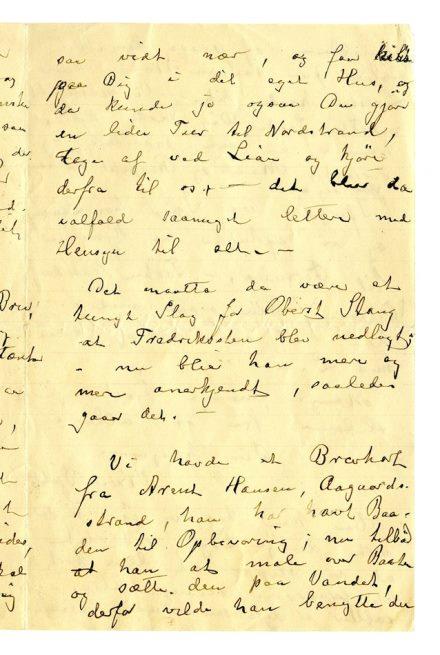 saa vidt nær, og faa kikke
paa Dig i dit eget Hus, og
da kunde jo ogsaa Du gjøre
en liden Tur til Nordstrand,
tage af ved Lian og kjøre
derfra til os, — det blir da
ialfald saameget lettere med
Hensyn til alt. —
Det maatte da være et
tungt Slag for Oberst Stang
at Fredriksten blev nedlagt;
— nu blir han mer og
mer anerkjendt, saaledes
gaar det. —
Vi havde et Brevkort
fra Arent Hansen, Aagaards-
strand, han har havt Baa-
den til Opbevaring; nu tilbød
han at male over Baaden
og sætte den paa Vandet,
derfor vilde han benytte den